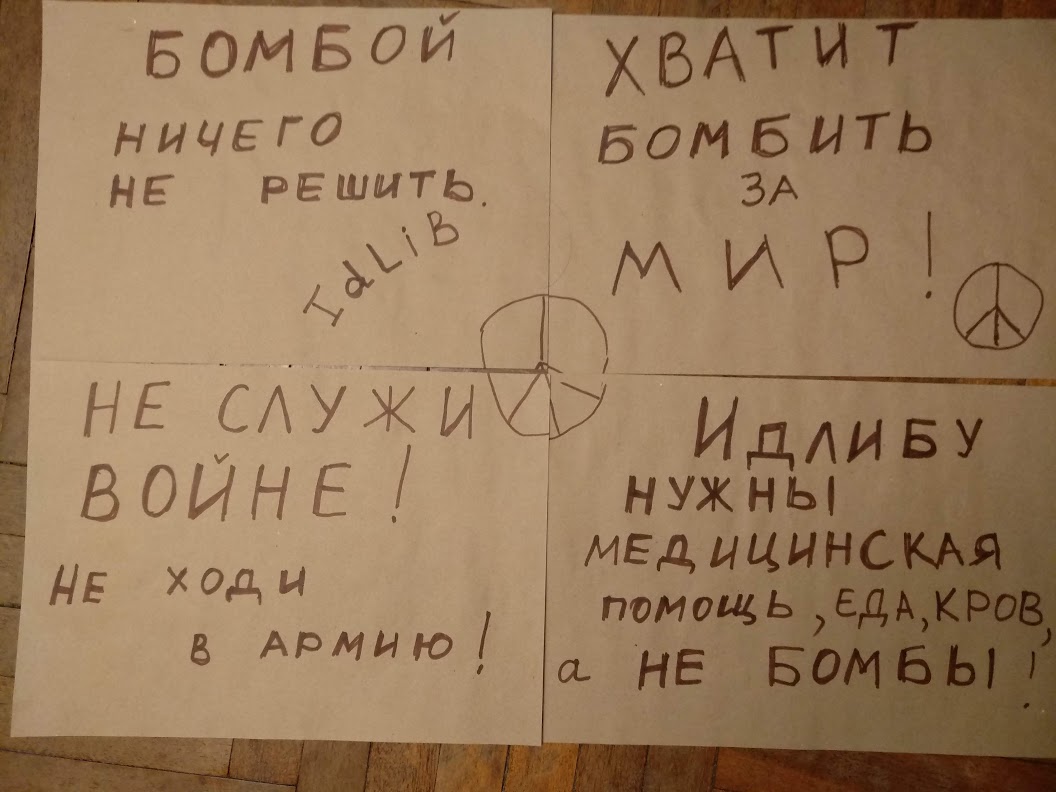 БОМБОЙ
НИЧЕГО
НЕ РЕШИТЬ.
IdLiB
ХВАТИТ
БОМБИТЬ
ЗА
МИР!
НЕ СЛУЖИ
ВОЙНЕ!
НЕ ХОДИ
В АРМИЮ!
ИДЛИБУ
НУЖНЫ
МЕДИЦИНСКАЯ
ПОМОЩЬ, ЕДА, КРОВ,
а НЕ БОМБЫ!